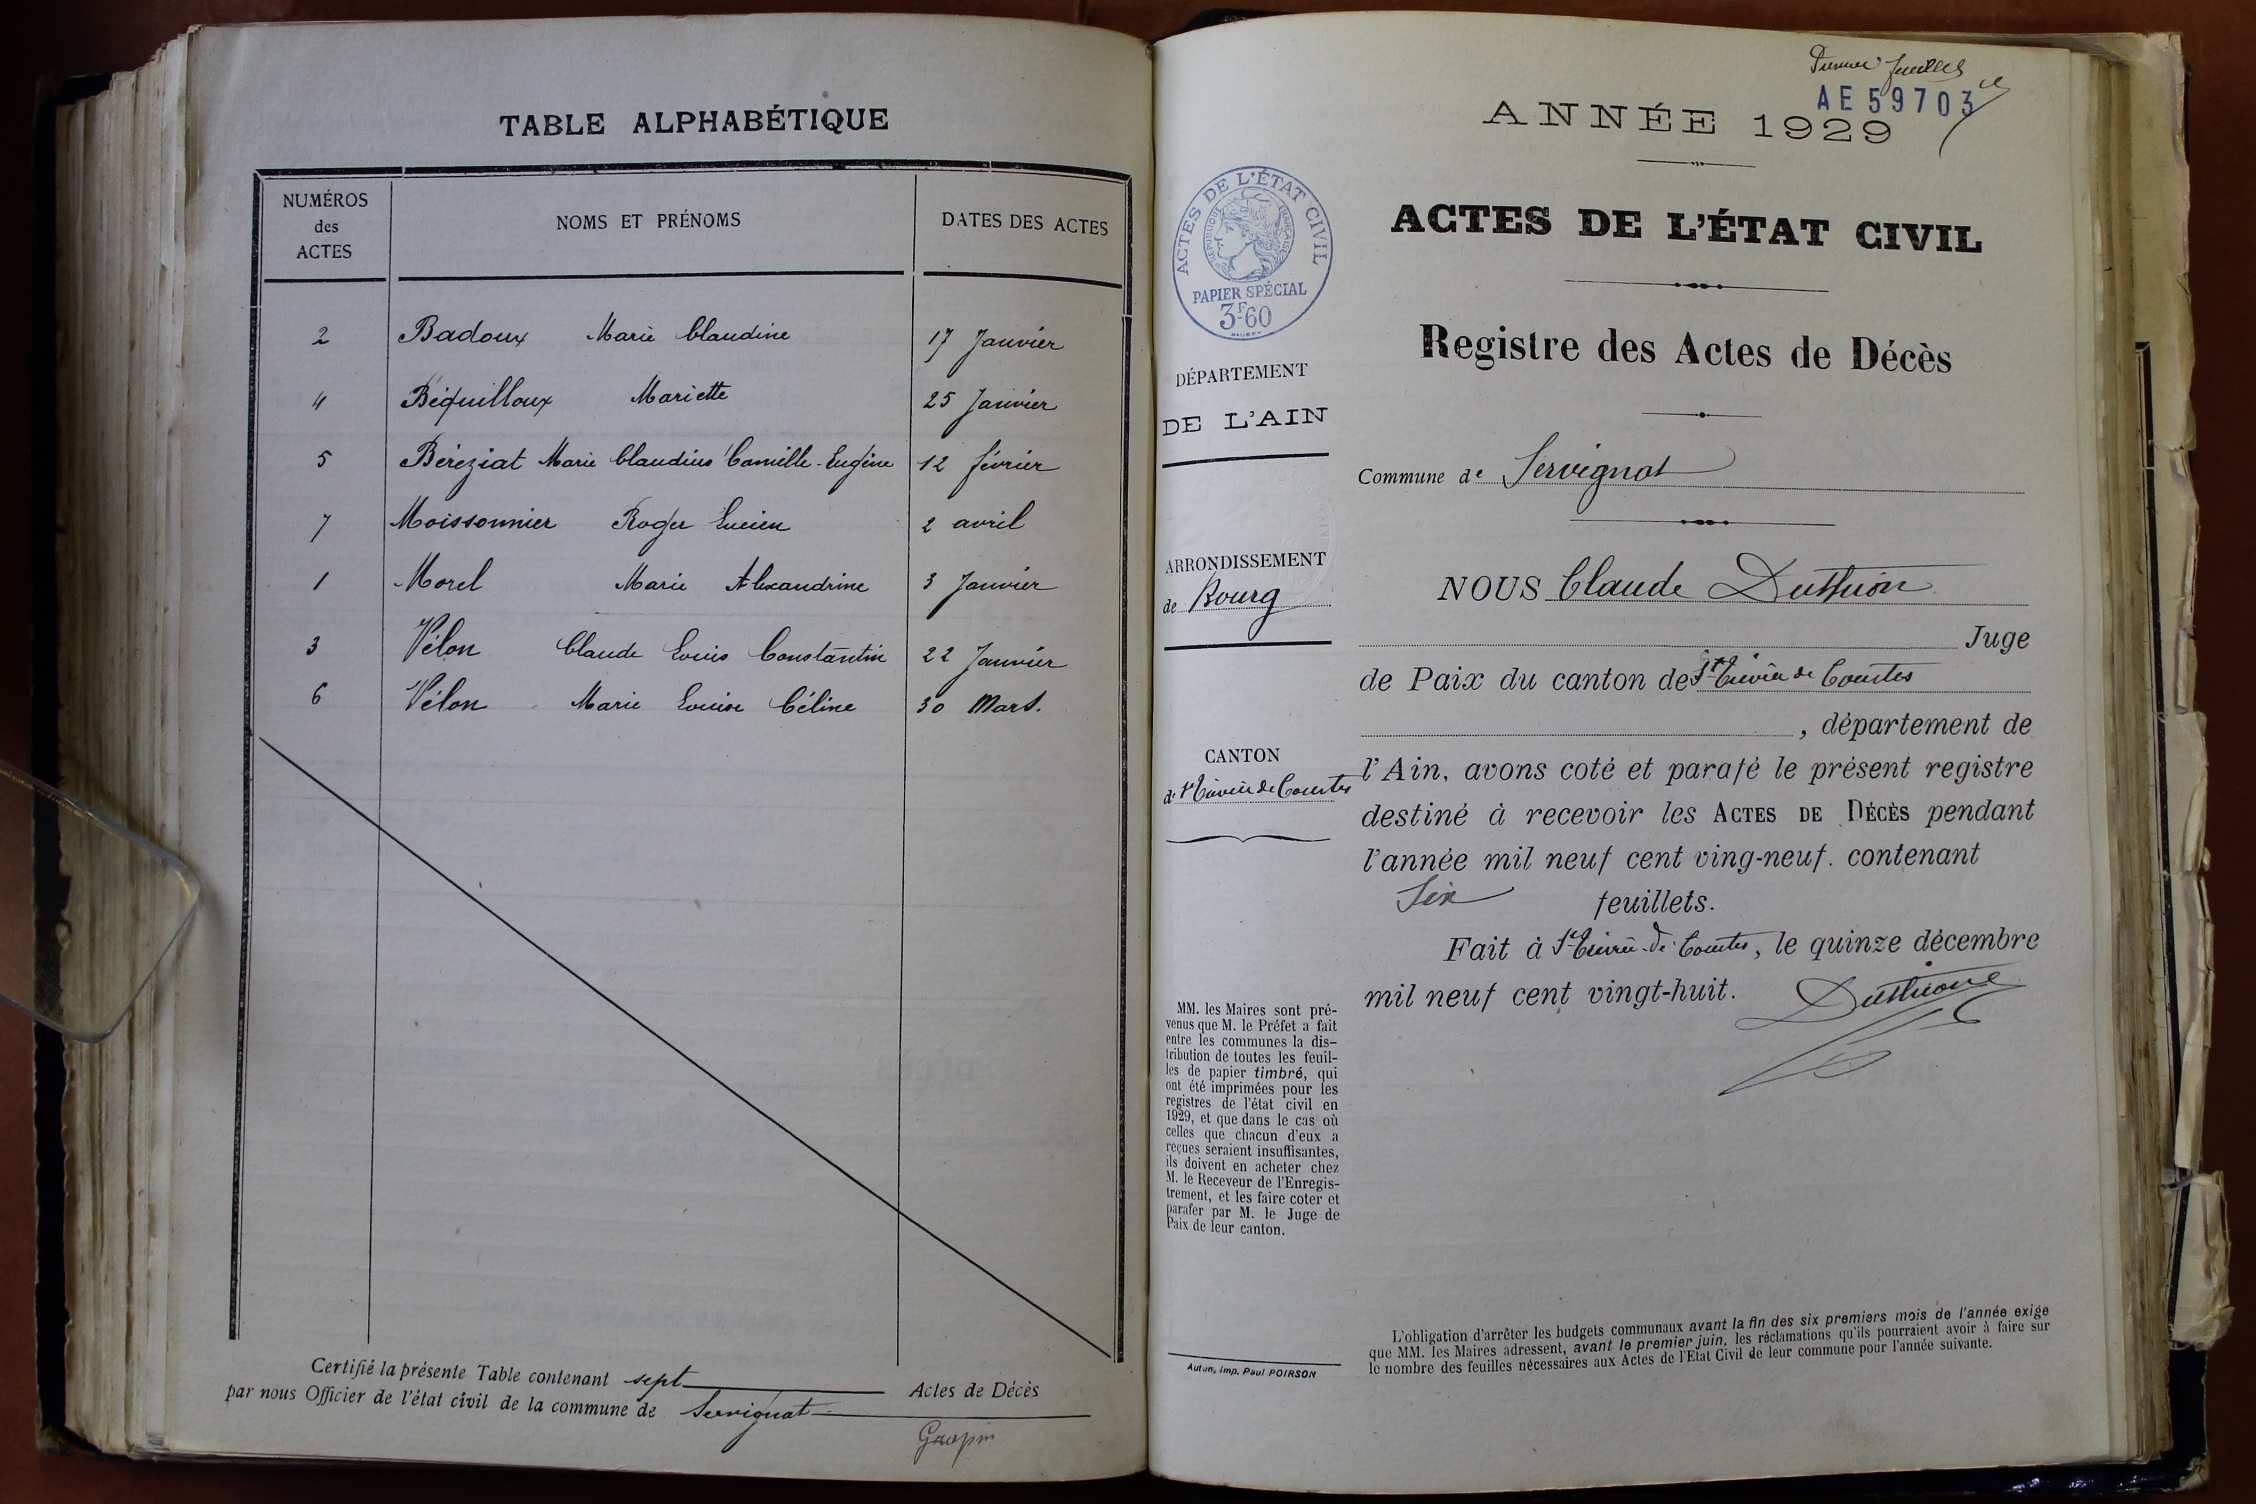 TABLE ALPHABÉTIQUE
NUMÉROS des ACTES NOMS ET PRÉNOMS DATES DES ACTES
2 Badoux Marie Claudine 17 Janvier
4 Béquilloux Mariette 25 Janvier
5 Béréziat Marie Claudius Camille-Eugène 12 février
7 Moissonnier Roger Lucien 2 avril
1 Morel Marie Alexandrine 3 Janvier
3 Vélon Claude Louis Constantin 22 Janvier
6 Vélon Marie Louise Céline 30 Mars.
Certifié la présente Table contenant sept Actes de Décès
par nous Officier de l'état civil de la commune de Servignat
Premier feuillet
AE 59703
ANNÉE 1929
ACTES DE L'ÉTAT CIVIL
RÉPUBLIQUE FRANÇAISE
PAPIER SPÉCIAL
3F60
ACTES DE L'ÉTAT CIVIL
Registre des Actes de Décès
DÉPARTEMENT
DE L'AIN
Commune de Servignat
ARRONDISSEMENT
de Bourg
NOUS Claude
Juge
de Paix du canton de St Trivier de Courtes
, département de
CANTON
de St Trivier de Courtes
l'Ain, avons coté et parafé le présent registre
destiné à recevoir les ACTES DE DÉCÈS pendant
l'année mil neuf cent ving-neuf. contenant
Six feuillets.
Fait à St Trivier-de-Courtes, le quinze décembre
mil neuf cent vingt-huit.
MM. les Maires sont pré-
venus que M. le Préfet a fait
entre les communes la dis-
tribution de toutes les feuil-
les de papier timbré, qui
ont été imprimées pour les
registres de l'état civil en
1929, et que dans le cas où
celles que chacun d'eux a
reçues seraient insuffisantes,
ils doivent en acheter chez
M. le Receveur de l'Enregis-
trement, et les faire coter et
parafer par M. le Juge de
Paix de leur canton.
Autun, Imp. Paul POIRSON
L'obligation d'arrêter les budgets communaux avant la fin des six premiers mois de l'année exige
que MM. les Maires adressent, avant le premier juin, les réclamations qu'ils pourraient avoir à faire sur
le nombre des feuilles nécessaires aux Actes de l'Etat Civil de leur commune pour l'année suivante.